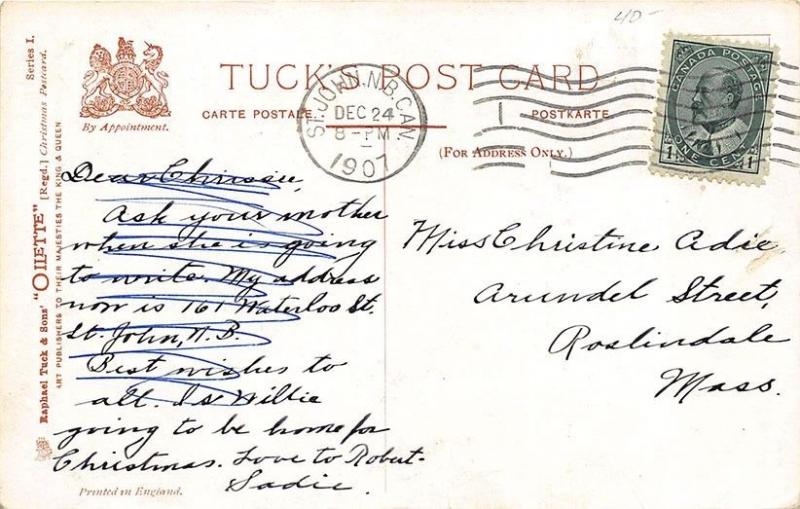 40-
TUCK'S POST CARD
CARTE POSTALE
POSTKARTE
(FOR ADDRESS ONLY.)
By Appointment.
ST. JOHN, N.B. CAN.
DEC 24
8-PM
1907
CANADA POSTAGE
1 ONE CENT 1
Series I.
Raphael Tuck & Sons' "OILETTE" [Regd.] Christmas Postcard.
ART PUBLISHERS TO THEIR MAJESTIES THE KING & QUEEN
Dear Chrissie,
Ask your mother
when she is going
to write. My address
now is 161 Waterloo St.
St. John, N.B.
Best wishes to
all. Is Willie
going to be home for
Christmas. Love to Robert-
Sadie.
Miss Christine Adie
Arundel Street,
Roslindale
Mass.
Printed in England.